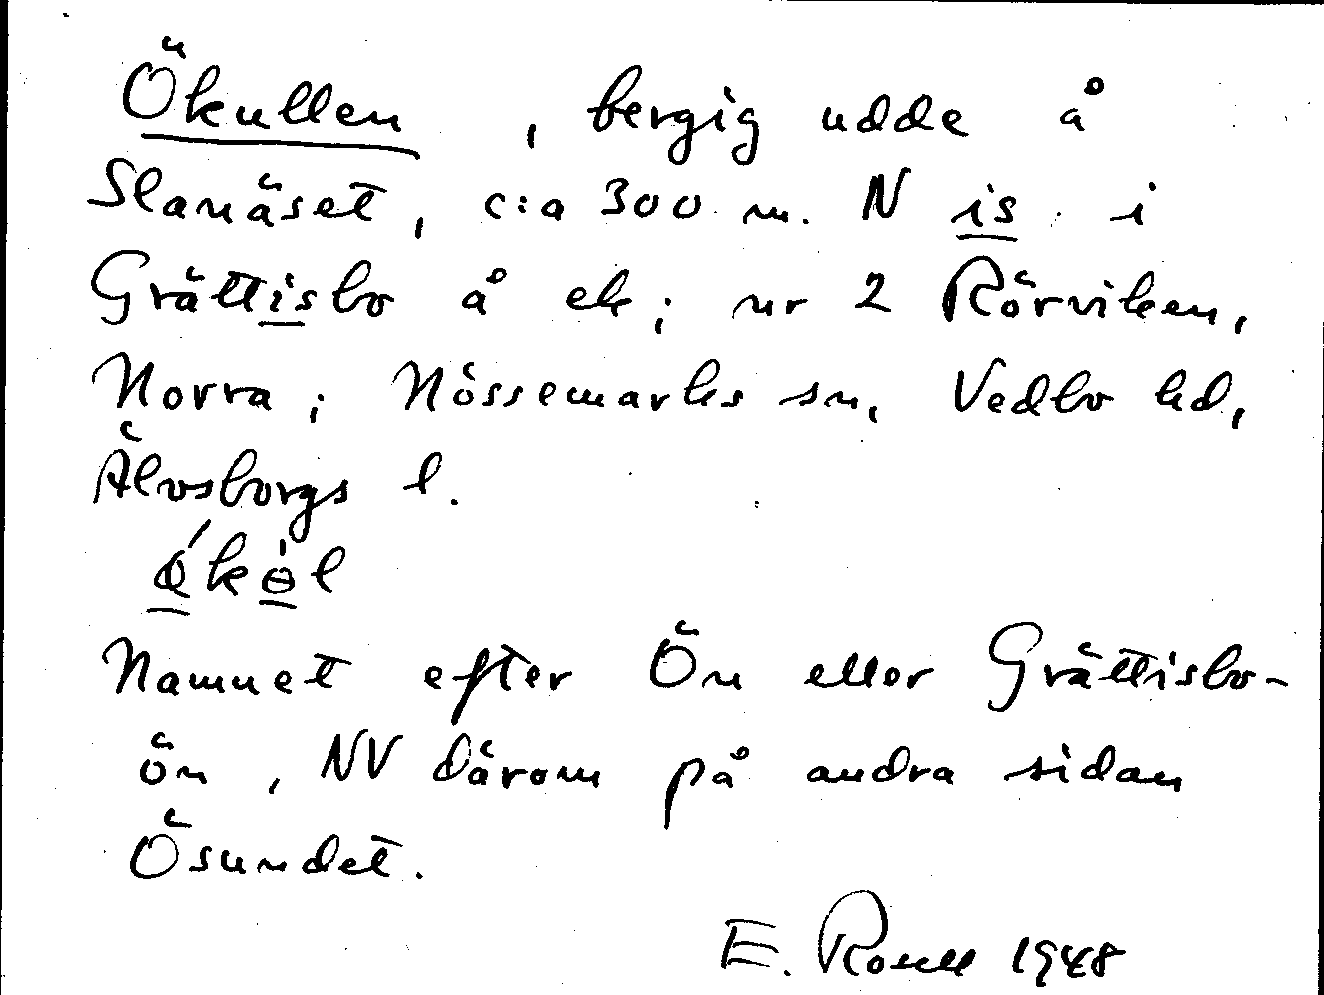 Ökullen, bergig udde å
Slanäset, c:a 300 m. N is i
Grättisbo å ek; nr 2 Rörviken,
Norra; Nössemarks sn, Vedbo hd,
Älvsborgs l.
Namnet efter Ön eller Grättisbo-
ön, NV därom på andra sidan
Ösundet.
E. 1948